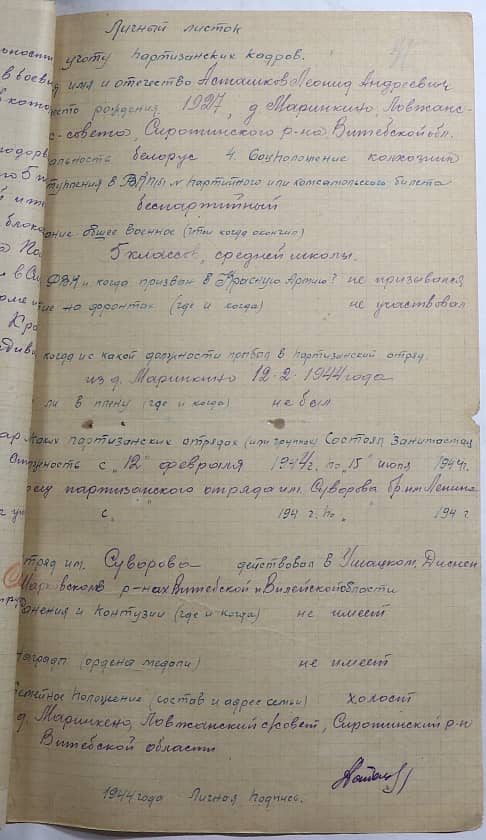 Личный листок
учоту партизанских кадров.
имя и отечество Асташков Леонид Андреевич
рождения 1927, д Маринкино, Ловжанс-
с-совета, Сиротинского р-на, Витебской обл.
белорус 4. Соцположение колхозник
№ партийного или комсомольского билета
беспартийный
общее военное (что когда окончил)
5 классов, средней школы.
и когда призван в Красную Армию? не призывался
на фронтах (где и когда) не участвовал
когда и с какой должности прибыл в партизанский отряд.
из д. Маринкино 12.2.1944 года
ли в плену (где и когда) не был
каких партизанских отрядах (или группах) состоял занимаемая
с "12" февраля 1944 г. по "15" июля 1944 г.
партизанского отряда им. Суворова бр. им Ленина
с " 194 г. по " 194 г
им. Суворова действовал в Ушацком, Диснен
р-нах Витебской и Вилейской области
и контузии (где и когда) не имеет
(ордена медали) не имеет
положение (состав и адрес семьи) холост
д. Маринкено, Ловжанский с/совет, Сиротинский р-н
Витебской области
1944 года Личная подпись.